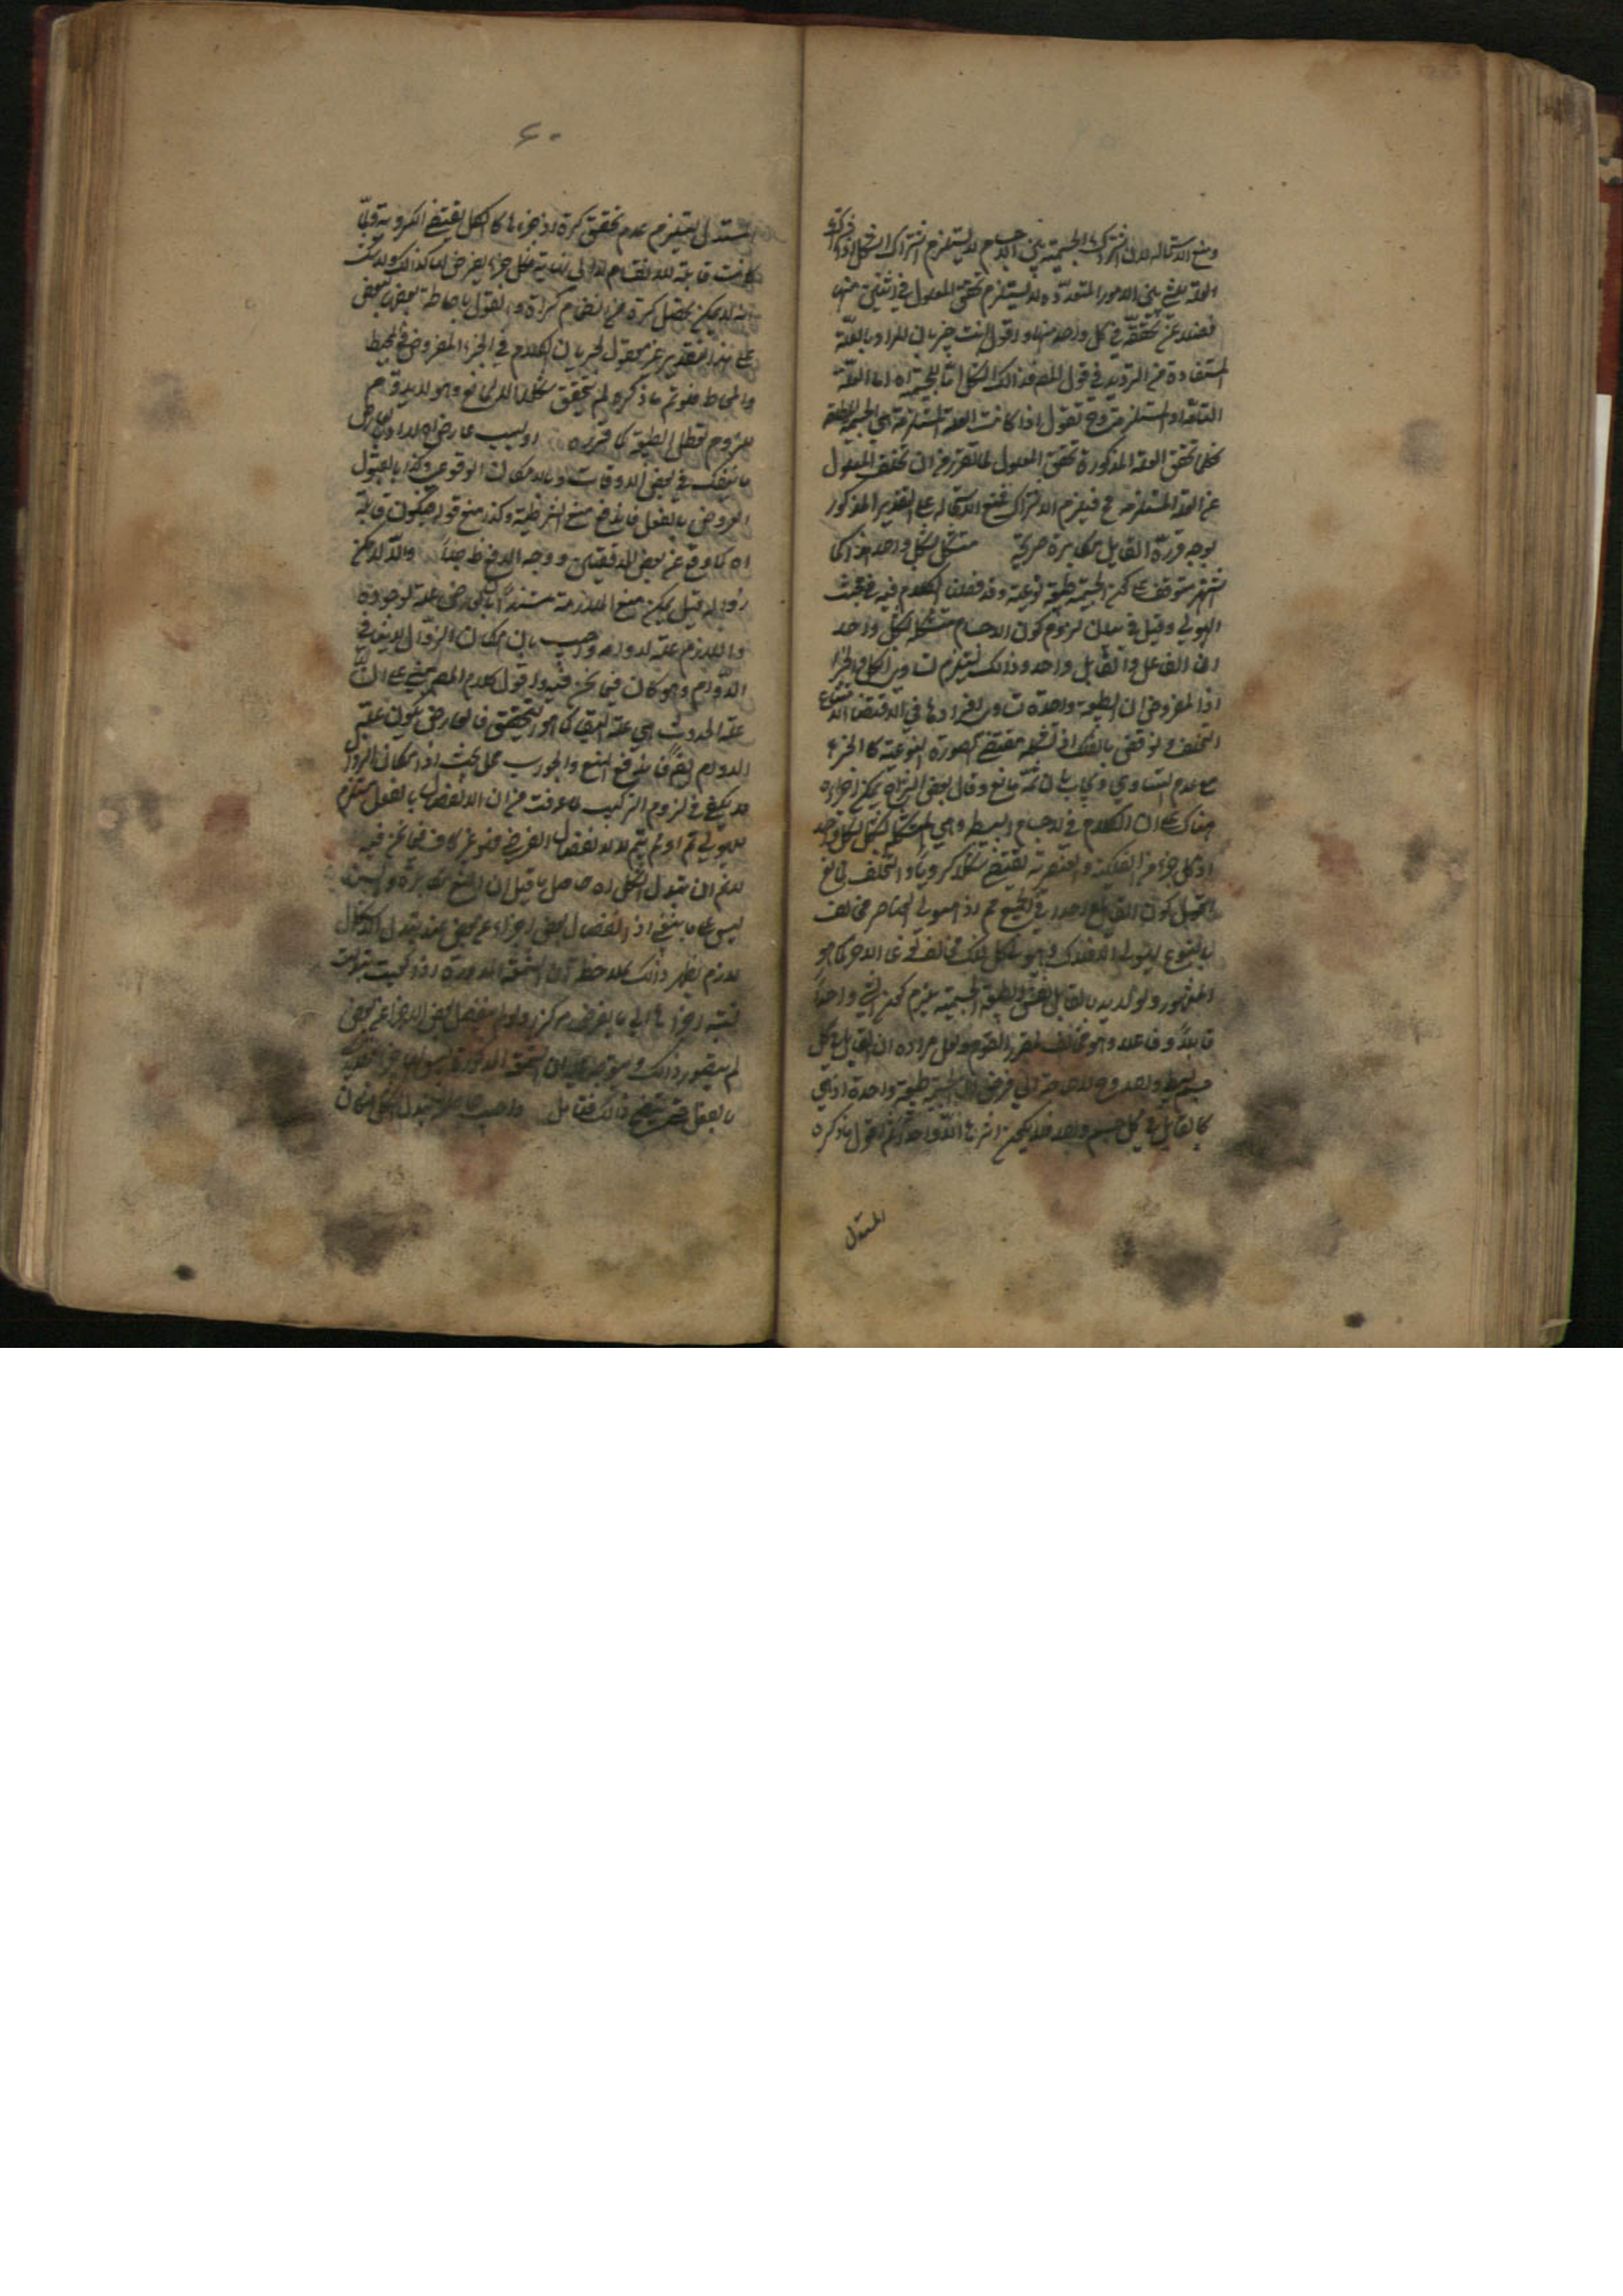 ومنع الاستحالة لان اشتراك الجسمية بين الاجسام لا يستلزم اشتراك الشكل اذ اشتراك
العلة بين الامور المتعددة لا يستلزم تحقق المعلول في اثنين منها
فضلا عن تحققه في كل واحد منها واقول انت خبير بان المراد بالعلة
المستفادة من الترديد في قول المص فذالك الشكل اما للجسمية اه اما العلة
التامة او المستلزمة وح نقول اذا كانت العلة المستلزمة هي الجسمية المطلقة
فكلما تحقق العلة المذكورة تحقق المعلول لما تقرر من ان تخلف المعلول
عن العلة المستلزمة مح فيلزم الاشتراك فمنع الاستحالة على التقدير المذكور
بوجه قرره القايل مكابرة صريحة متشكل بشكل واحد هذا كما
اشتهر متوقف على كون الجسمية طبيعة نوعية وقد فصلنا الكلام فيه في مبحث
الهيولي وقيل في بيان لزوم كون الاجسام متشكلا بشكل واحد
ان الفاعل والقابل واحد وذالك يستلزم تساوي الكل والجزء
اذ المفروض ان الطبيعة واحدة تساوي افرادها في الاقتضاء لامتناع
التخلف ونوقض بالفلك اذ شكله مقتضى الصورة النوعية كالجزء
مع عدم التساوي ويجاب بان ثمة مانع وقال بعض
هناك على ان الكلام في الاجسام البسيطة وهي متشكلة بشكل واحد
اذ كل جزء من الفلكية والعنصرية يقتضي شكلا كرويا والتخلف لمانع
كون القابل واحدا في الجميع مم اذ هيولي العناصر مخالف
بالنوع لهيولي الافلاك وهيولي كل فلك مخالف لهيولي الاخر كما هو
المشهور ولو اريد بالقابل نفس الطبيعة الجسمية يلزم كون الشي واحدا
قابلا وفاعلا وهو مخالف لمقرر القوم ولعل مراده ان القابل في كل
جسم بسيط واحد وح لا حاجة الي فرض ان الجسمية طبيعة واحدة اذ يكفي
كالقابل في كل جسم واحد فلا يكون اثرها الا واحدا ثم اقول ما ذكره
المستدل
٦٠
المستدل يستلزم عدم تحقق كرة اذ جزءها كالكل يقتضي الكروية ولما
كانت قابلة للانقسام لا الي نهاية فكل جزء يفرض لها كذالك ولا شك
انه لا يمكن يحصل كرة من انضمام كرات والقول باحاطة بعض ببعض
على هذا التقدير غير معقول لجريان الكلام في الجزء المفروض في المحيط
والمحاط فلو تم ما ذكره لم يتحقق شكل الا لمانع وهو لا يدوم
للزوم تعطل الطبيعة كما قرره او بسبب عارض اه المراد بالعارض
ما ينفك في بعض الاوقات وبالامكان الوقوعي وكذا بالقبول
العروض بالفعل فاندفع منع الشرطية وكذا منع قوله فيكون قابلة
اه كما وقع عن بعض المدققين ووجه الدفع ظ جدا والا لا يمكن
زواله قيل يمكن منع الملازمة مستندا بان العارض علة لوجوده
واللازم علة لدوامه واجيب بان امكان الزوال لا ينافي
الدوام وهو كاف فيما نحن فيه واقول كلام المص مبني على ان
علة الحدوث هي علة البقاء كما هو التحقيق فالعارض يكون علة
الدوام ايضا فيندفع المنع والجواب محل بحث اذ امكان الزوال
لا يكفي في لزوم التركيب لما عرفت من ان الانفصال بالفعل مستلزم
للهيولي ثم او لم يتم لا الانفصال الفرضي فهو غير كاف فيما نحن فيه
لانم ان تبدل الشكل اه حاصل ما قيل ان المنع مكابرة والسند
ليس على ما ينبغي اذ انفصال بعض اجزاء عن بعض عند تبدل الاشكال
لازم يظهر ذالك بملاحظة ان الشمعة المدورة اذا كعبت تبدلت
نسبة اجزائها الي ما يفرض مركزا ولو لم ينفصل بعض الاجزاء عن بعض
لم يتصور ذالك ويتوجه عليه ان الشمعة المذكورة ليس لها جزء
بالفعل حتى ذالك فتامل واجيب تبدل الشكل وان كان